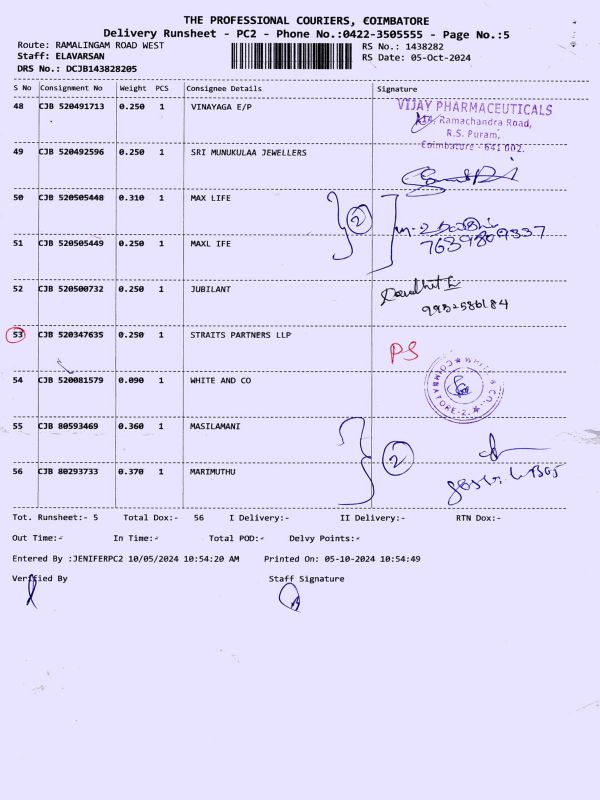 THE PROFESSIONAL COURIERS, COIMBATORE
Delivery Runsheet - PC2 - Phone No.:0422-3505555 - Page No.:5
Route: RAMALINGAM ROAD WEST
RS No.: 1438282
Staff: ELAVARSAN
RS Date: 05-Oct-2024
DRS No.: DCJB143828205
S No Consignment No Weight PCS Consignee Details Signature
48 CJB 520491713 0.250 1 VINAYAGA E/P
VIJAY PHARMACEUTICALS
Ramachandra Road,
R.S. Puram,
Coimbature - 641 002.
49 CJB 520492596 0.250 1 SRI MUNUKULAA JEWELLERS
50 CJB 520505448 0.310 1 MAX LIFE
2
7639809337
51 CJB 520505449 0.250 1 MAXL IFE
52 CJB 520500732 0.250 1 JUBILANT
53 CJB 520347635 0.250 1 STRAITS PARTNERS LLP
PS
54 CJB 520081579 0.090 1 WHITE AND CO
WHITE & CO. COIMBATORE-2.
55 CJB 80593469 0.360 1 MASILAMANI
2
56 CJB 80293733 0.370 1 MARIMUTHU
Tot. Runsheet:- 5 Total Dox:- 56 I Delivery:- II Delivery:- RTN Dox:-
Out Time:- In Time:- Total POD:- Delvy Points:-
Entered By :JENIFERPC2 10/05/2024 10:54:20 AM Printed On: 05-10-2024 10:54:49
Verified By Staff Signature